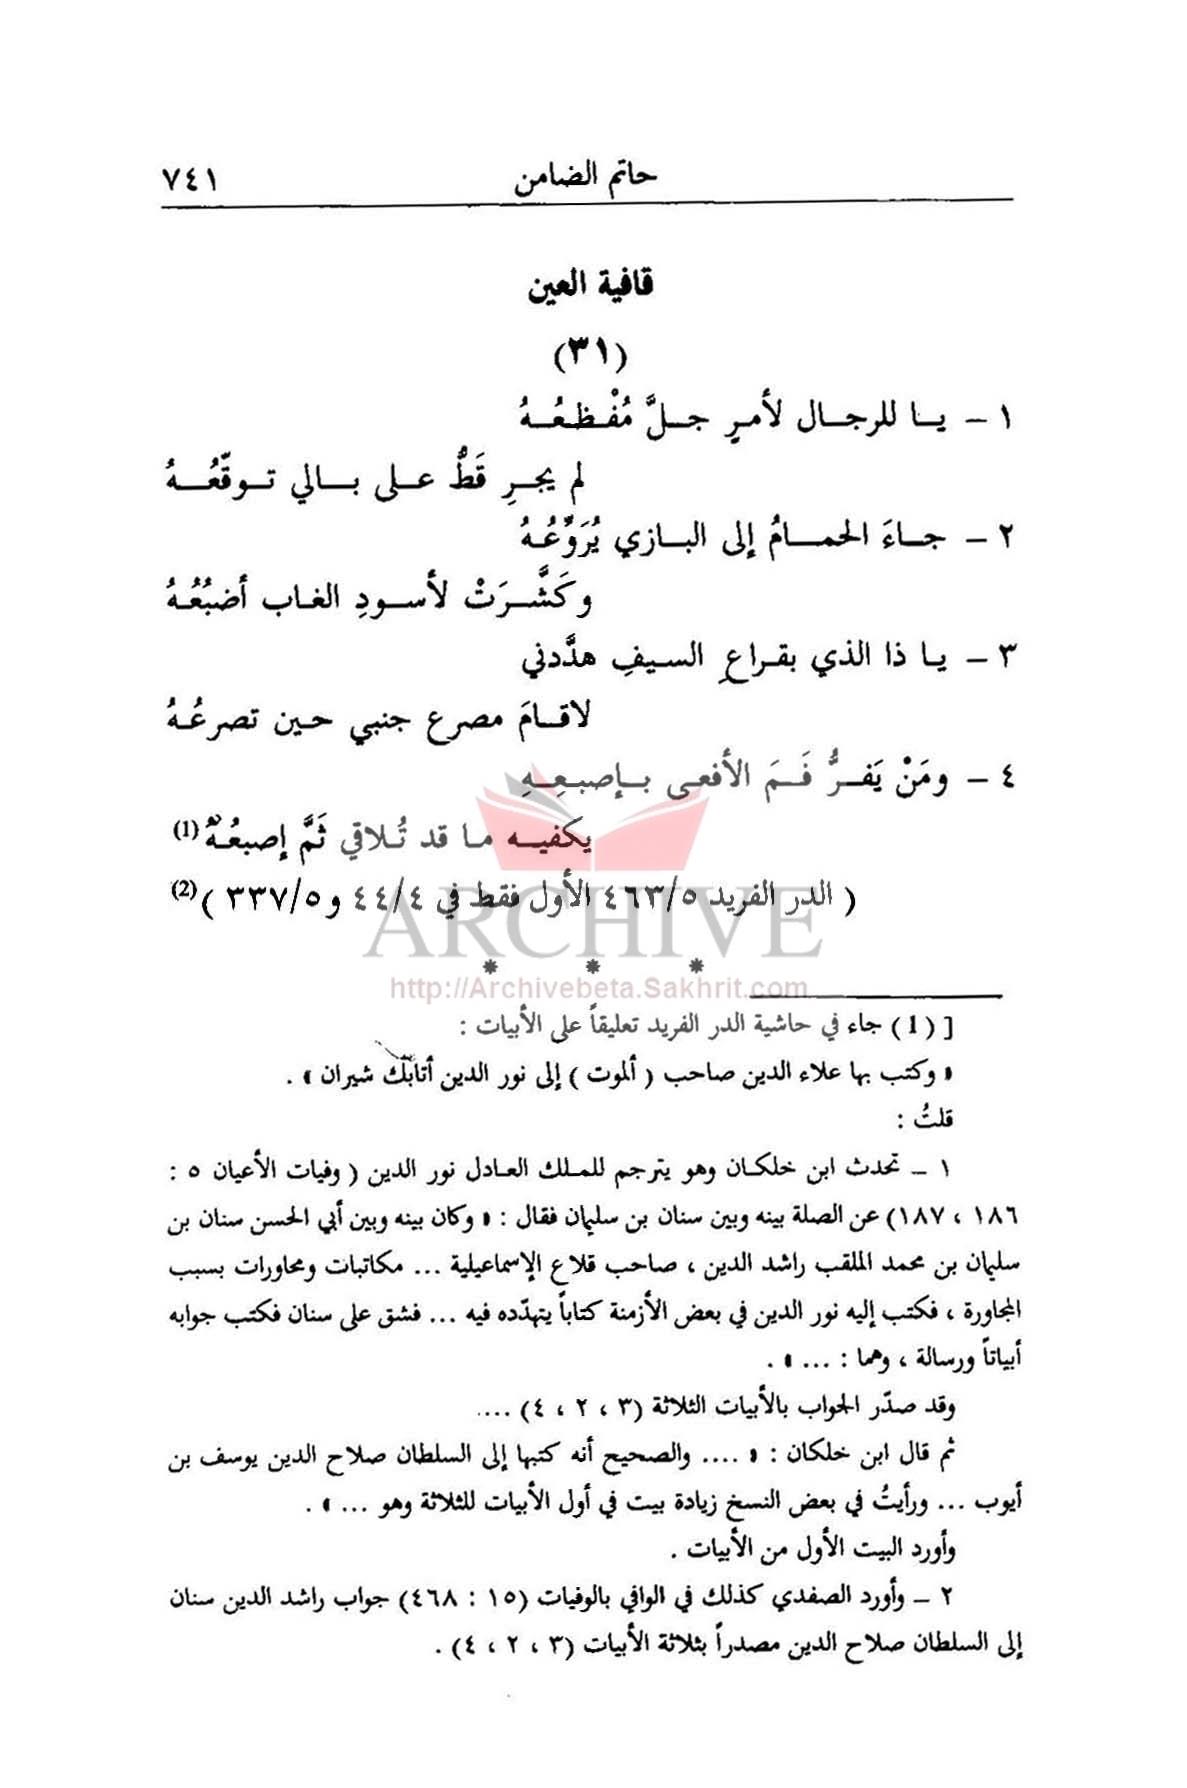 حاتم الضامن ٧٤١
قافية العين
(٣١)
١ - يـا للرجـال لأمـرٍ جـلَّ مُفْـظِـعُـهُ
لم يجـرِ قَطُّ عـلى بـالي تـوقّعُـهُ
٢ - جـاءَ الحمـامُ إلى البـازي يُرَوِّعُـهُ
وكَشَّـرَتْ لأسـودِ الغـاب أضبُعُـهُ
٣ - يـا ذا الذي بقـراعِ السيفِ هدَّدني
لاقـامَ مصرع جنبي حـين تصرعُـهُ
٤ - ومَنْ يَفـرُّ فَـمَ الأفعـى بـإصبعِـهِ
يكفيـه مـا قد تُـلاقي ثَمَّ إصبعُـهُ (1)
( الدر الفريد ٤٦٣/٥ الأول فقط في ٤٤/٤ و٣٣٧/٥ ) (2)
ARCHIVE
* * *
http://Archivebeta.Sakhrit.com
[ (1) جاء في حاشية الدر الفريد تعليقاً على الأبيات :
« وكتب بها علاء الدين صاحب ( ألموت ) إلى نور الدين أتابك شيران » .
قلتُ :
١ ـ تحدث ابن خلكان وهو يترجم للملك العادل نور الدين ( وفيات الأعيان ٥ :
١٨٦ ، ١٨٧) عن الصلة بينه وبين سنان بن سليمان فقال : « وكان بينه وبين أبي الحسن سنان بن
سليمان بن محمد الملقب راشد الدين ، صاحب قلاع الإسماعيلية ... مكاتبات ومحاورات بسبب
المجاورة ، فكتب إليه نور الدين في بعض الأزمنة كتاباً يتهدّده فيه ... فشق على سنان فكتب جوابه
أبياتاً ورسالة ، وهما : ... » .
وقد صدّر الجواب بالأبيات الثلاثة (٣ ، ٢ ، ٤) ....
ثم قال ابن خلكان : « .... والصحيح أنه كتبها إلى السلطان صلاح الدين يوسف بن
أيوب ... ورأيتُ في بعض النسخ زيادة بيت في أول الأبيات للثلاثة وهو ... » .
وأورد البيت الأول من الأبيات .
٢ ـ وأورد الصفدي كذلك في الوافي بالوفيات (١٥ : ٤٦٨) جواب راشد الدين سنان
إلى السلطان صلاح الدين مصدراً بثلاثة الأبيات (٣ ، ٢ ، ٤) .